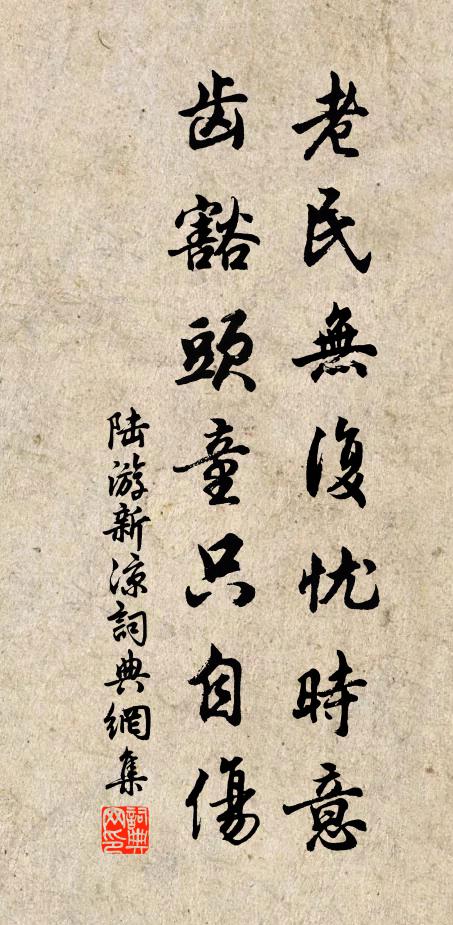 老民無復忧時意
齿豁頭童只自傷
陆游新凉詞典網集
詞典网印